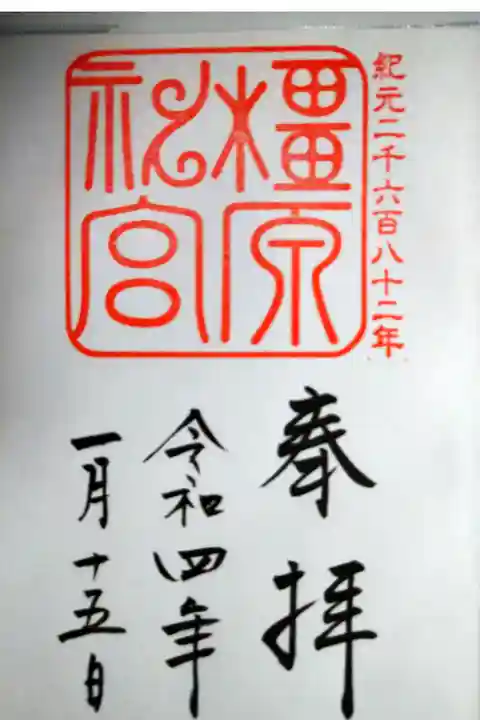 紀元二千六百八十二年
橿原
神宮
奉拝
令和四年
一月十五日